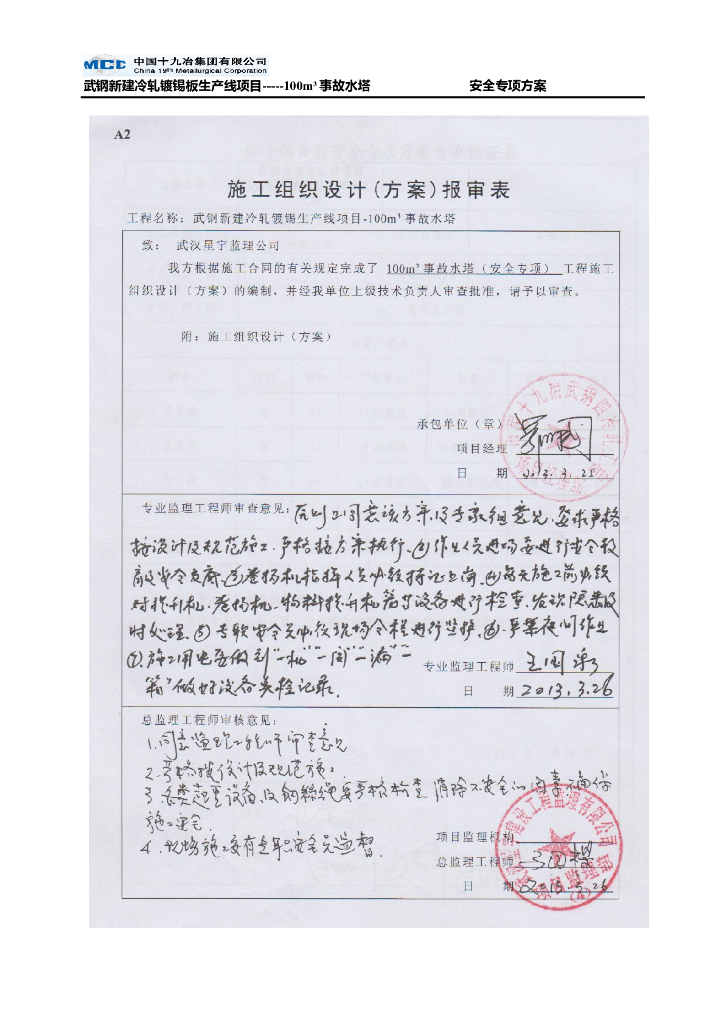 MCC 中国十九冶集团有限公司
China 19th Metallurgical Corporation
武钢新建冷轧镀锡板生产线项目-----100m³事故水塔 安全专项方案
A2
施工组织设计(方案)报审表
工程名称：武钢新建冷轧镀锡生产线项目-100m³事故水塔
致： 武汉星宇监理公司
我方根据施工合同的有关规定完成了 100m³事故水塔（安全专项） 工程施工
组织设计（方案）的编制，并经我单位上级技术负责人审查批准，请予以审查。
附：施工组织设计（方案）
承包单位（章）
项目经理
日 期 2013.3.25
专业监理工程师审查意见：原则上同意该方案及专家组意见，要求严格
按设计及规范施工，严格按方案执行。②作业人员进场要进行安全教
育及安全交底。③卷扬机指挥人员必须持证上岗。④每天施工前必须
对提升机、卷扬机、物料提升机等设备进行检查，发现隐患及
时处理。⑤专职安全员必须现场全程进行监护。⑥严禁夜间作业
⑦施工用电要做到"一机""一闸""一漏""一
箱"做好设备关检记录。
专业监理工程师
日 期 2013.3.26
总监理工程师审核意见：
1.同意监理工程师审查意见
2.严格按设计及规范施工
3.各类起重设备及钢丝绳要严格检查，消除不安全的因素，确保
施工安全。
4.现场施工要有专职安全员监督。
项目监理机构
总监理工程师
日 期 2013.3.26